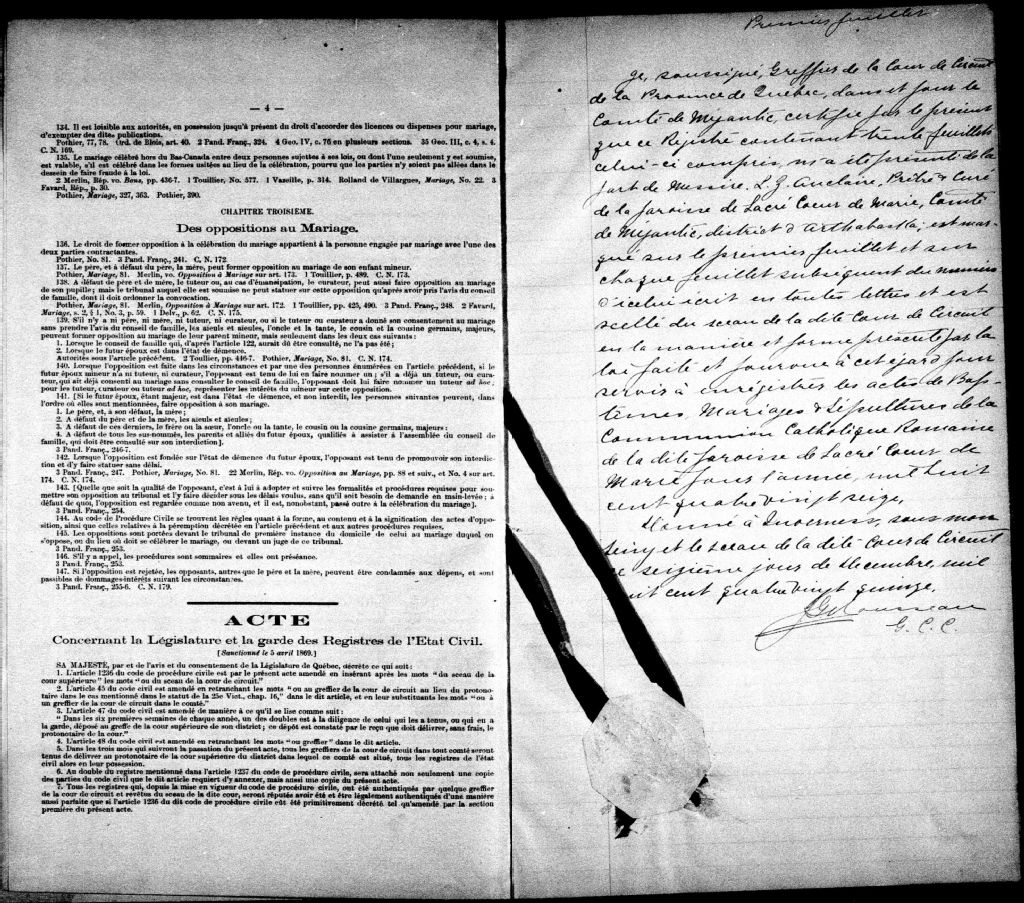 — 4 —
134. Il est loisible aux autorités, en possession jusqu'à présent du droit d'accorder des licences ou dispenses pour mariage,
d'exempter des dites publications.
Pothier, 77, 78. Ord. de Blois, art. 40. 2 Pand. Franç., 324. 4 Geo. IV, c. 76 en plusieurs sections. 35 Geo. III, c. 4, s. 4.
C. N. 169.
135. Le mariage célébré hors du Bas-Canada entre deux personnes sujettes à ses lois, ou dont l'une seulement y est soumise,
est valable, s'il est célébré dans les formes usitées au lieu de la célébration, pourvu que les parties n'y soient pas allées dans le
dessein de faire fraude à la loi.
2 Merlin, Rép. vo. Bans, pp. 436-7. 1 Touillier, No. 577. 1 Vazeille, p. 314. Rolland de Villargues, Mariage, No. 22. 3
Favard, Rép., p. 30.
Pothier, Mariage, 327, 363. Pothier, 390.
CHAPITRE TROISIEME.
Des oppositions au Mariage.
136. Le droit de former opposition à la célébration du mariage appartient à la personne engagée par mariage avec l'une des
deux parties contractantes.
Pothier, No. 81. 3 Pand. Franç., 241. C. N. 172.
137. Le père, et à défaut du père, la mère, peut former opposition au mariage de son enfant mineur.
Pothier, Mariage, 81. Merlin, vo. Opposition à Mariage sur art. 173. 1 Touillier, p. 489. C. N. 173.
138. A défaut de père et de mère, le tuteur ou, au cas d'émancipation, le curateur, peut aussi faire opposition au mariage
de son pupille; mais le tribunal auquel elle est soumise ne peut statuer sur cette opposition qu'après avoir pris l'avis du conseil
de famille, dont il doit ordonner la convocation.
Pothier, Mariage, 81. Merlin, Opposition à Mariage sur art. 172. 1 Touillier, pp. 425, 490. 3 Pand. Franç., 248. 2 Favard,
Mariage, s. 2, § 1, No. 3, p. 59. 1 Delv., p. 62. C. N. 175.
139. S'il n'y a ni père, ni mère, ni tuteur, ni curateur, ou si le tuteur ou curateur a donné son consentement au mariage
sans prendre l'avis du conseil de famille, les aïeuls et aïeules, l'oncle et la tante, le cousin et la cousine germains, majeurs,
peuvent former opposition au mariage de leur parent mineur, mais seulement dans les deux cas suivants:
1. Lorsque le conseil de famille qui, d'après l'article 122, aurait dû être consulté, ne l'a pas été;
2. Lorsque le futur époux est dans l'état de démence.
Autorités sous l'article précédent. 2 Toullier, pp. 446-7. Pothier, Mariage, No. 81. C. N. 174.
140. Lorsque l'opposition est faite dans les circonstances et par une des personnes énumérées en l'article précédent, si le
futur époux mineur n'a ni tuteur, ni curateur, l'opposant est tenu de lui en faire nommer un; s'il a déjà un tuteur, ou cura-
teur, qui ait déjà consenti au mariage sans consulter le conseil de famille, l'opposant doit lui faire nommer un tuteur ad hoc;
pour les tuteur, curateur ou tuteur ad hoc, représenter les intérêts du mineur sur cette opposition.
141. [Si le futur époux, étant majeur, est dans l'état de démence, et non interdit, les personnes suivantes peuvent, dans
l'ordre où elles sont mentionnées, faire opposition à son mariage.
1. Le père, et, à son défaut, la mère;
2. A défaut du père et de la mère, les aïeuls et aïeules;
3. A défaut de ces derniers, le frère ou la sœur, l'oncle ou la tante, le cousin ou la cousine germains, majeurs:
4. A défaut de tous les sus-nommés, les parents et alliés du futur époux, qualifiés à assister à l'assemblée du conseil de
famille, qui doit être consulté sur son interdiction].
3 Pand. Franç., 246-7.
142. Lorsque l'opposition est fondée sur l'état de démence du futur époux, l'opposant est tenu de promouvoir son interdic-
tion et d'y faire statuer sans délai.
3 Pand. Franç., 247. Pothier, Mariage, No. 81. 22 Merlin, Rép. vo. Opposition au Mariage, pp. 88 et suiv., et No. 4 sur art.
174. C. N. 174.
143. [Quelle que soit la qualité de l'opposant, c'est à lui à adopter et suivre les formalités et procédures requises pour sou-
mettre son opposition au tribunal et l'y faire décider sous les délais voulus, sans qu'il soit besoin de demande en main-levée; à
défaut de quoi, l'opposition est regardée comme non avenu, et il est, nonobstant, passé outre à la célébration du mariage].
3 Pand. Franç., 254.
144. Au code de Procédure Civile se trouvent les règles quant à la forme, au contenu et à la signification des actes d'oppo-
sition, ainsi que celles relatives à la péremption décrétée en l'article précédent et aux autres procédures requises.
145. Les oppositions sont portées devant le tribunal de première instance du domicile de celui au mariage duquel on
s'oppose, ou du lieu où doit se célébrer le mariage, ou devant un juge de ce tribunal.
3 Pand. Franç., 253.
146. S'il y a appel, les procédures sont sommaires et elles ont préséance.
3 Pand. Franç., 253.
147. Si l'opposition est rejetée, les opposants, autres que le père et la mère, peuvent être condamnés aux dépens, et sont
passibles de dommages-intérêts suivant les circonstances.
3 Pand. Franç., 255-6. C. N. 179.
ACTE
Concernant la Législature et la garde des Registres de l'Etat Civil.
[Sanctionné le 5 avril 1869.]
SA MAJESTÉ, par et de l'avis et du consentement de la Législature de Québec, décrète ce qui suit:
1. L'article 1236 du code de procédure civile est par le présent acte amendé en insérant après les mots "du sceau de la
cour supérieure" les mots "ou du sceau de la cour de circuit."
2. L'article 45 du code civil est amendé en retranchant les mots "ou au greffier de la cour de circuit au lieu du protono-
taire dans le cas mentionné dans le statut de la 25e Vict., chap. 16," dans le dit article, et en leur substituants les mots "ou à
un greffier de la cour de circuit dans le comté."
3. L'article 47 du code civil est amendé de manière à ce qu'il se lise comme suit:
"Dans les six premières semaines de chaque année, un des doubles est à la diligence de celui qui les a tenus, ou qui en a
la garde, déposé au greffe de la cour supérieure de son district; ce dépôt est constaté par le reçu que doit délivrer, sans frais, le
protonotaire de la cour."
4. L'article 48 du code civil est amendé en retranchant les mots "ou greffier" dans le dit article.
5. Dans les trois mois qui suivront la passation du présent acte, tous les greffiers de la cour de circuit dans tout comté seront
tenus de délivrer au protonotaire de la cour supérieure du district dans lequel ce comté est situé, tous les registres de l'état
civil alors en leur possession.
6. Au double du registre mentionné dans l'article 1237 du code de procédure civile, sera attaché non seulement une copie
des parties du code civil que le dit article requiert d'y annexer, mais aussi une copie du présent acte.
7. Tous les registres qui, depuis la mise en vigueur du code de procédure civile, ont été authentiqués par quelque greffier
de la cour de circuit et revêtus du sceau de la dite cour, seront réputés avoir été et être légalement authentiqués d'une manière
aussi parfaite que si l'article 1236 du dit code de procédure civile eût été primitivement décrété tel qu'amendé par la section
première du présent acte.
Premier feuillet
Je, soussigné, Greffier de la Cour de Circuit
de la Province de Québec, dans et pour le
Comté de Mégantic certifie par le présent
que ce Registre contenant trente feuillets
celui-ci compris, m'a été présenté de la
part de Messire, L. Z. Auclaire, Prêtre & Curé
de la paroisse de Sacré Coeur de Marie, Comté
de Mégantic, district d'Arthabaska, est mar-
qué sur le premier feuillet et sur
chaque feuillet subséquent du numéro
d'icelui écrit en toutes lettres et est
scellé du sceau de la dite Cour de Circuit
en la manière et forme prescrite par la
loi faite et pourvue à cet égard pour
servir à enregistrer les actes de Bap-
têmes, Mariages & Sépultures de la
Communion Catholique Romaine
de la dite paroisse de Sacré Coeur de
Marie pour l'année, mil huit
cent quatre vingt seize,
Donné à Inverness, sous mon
seing et le sceau de la dite Cour de Circuit
ce seizième jour de décembre, mil
uit cent quatre vingt quinze.
Rousseau
G. C. C.